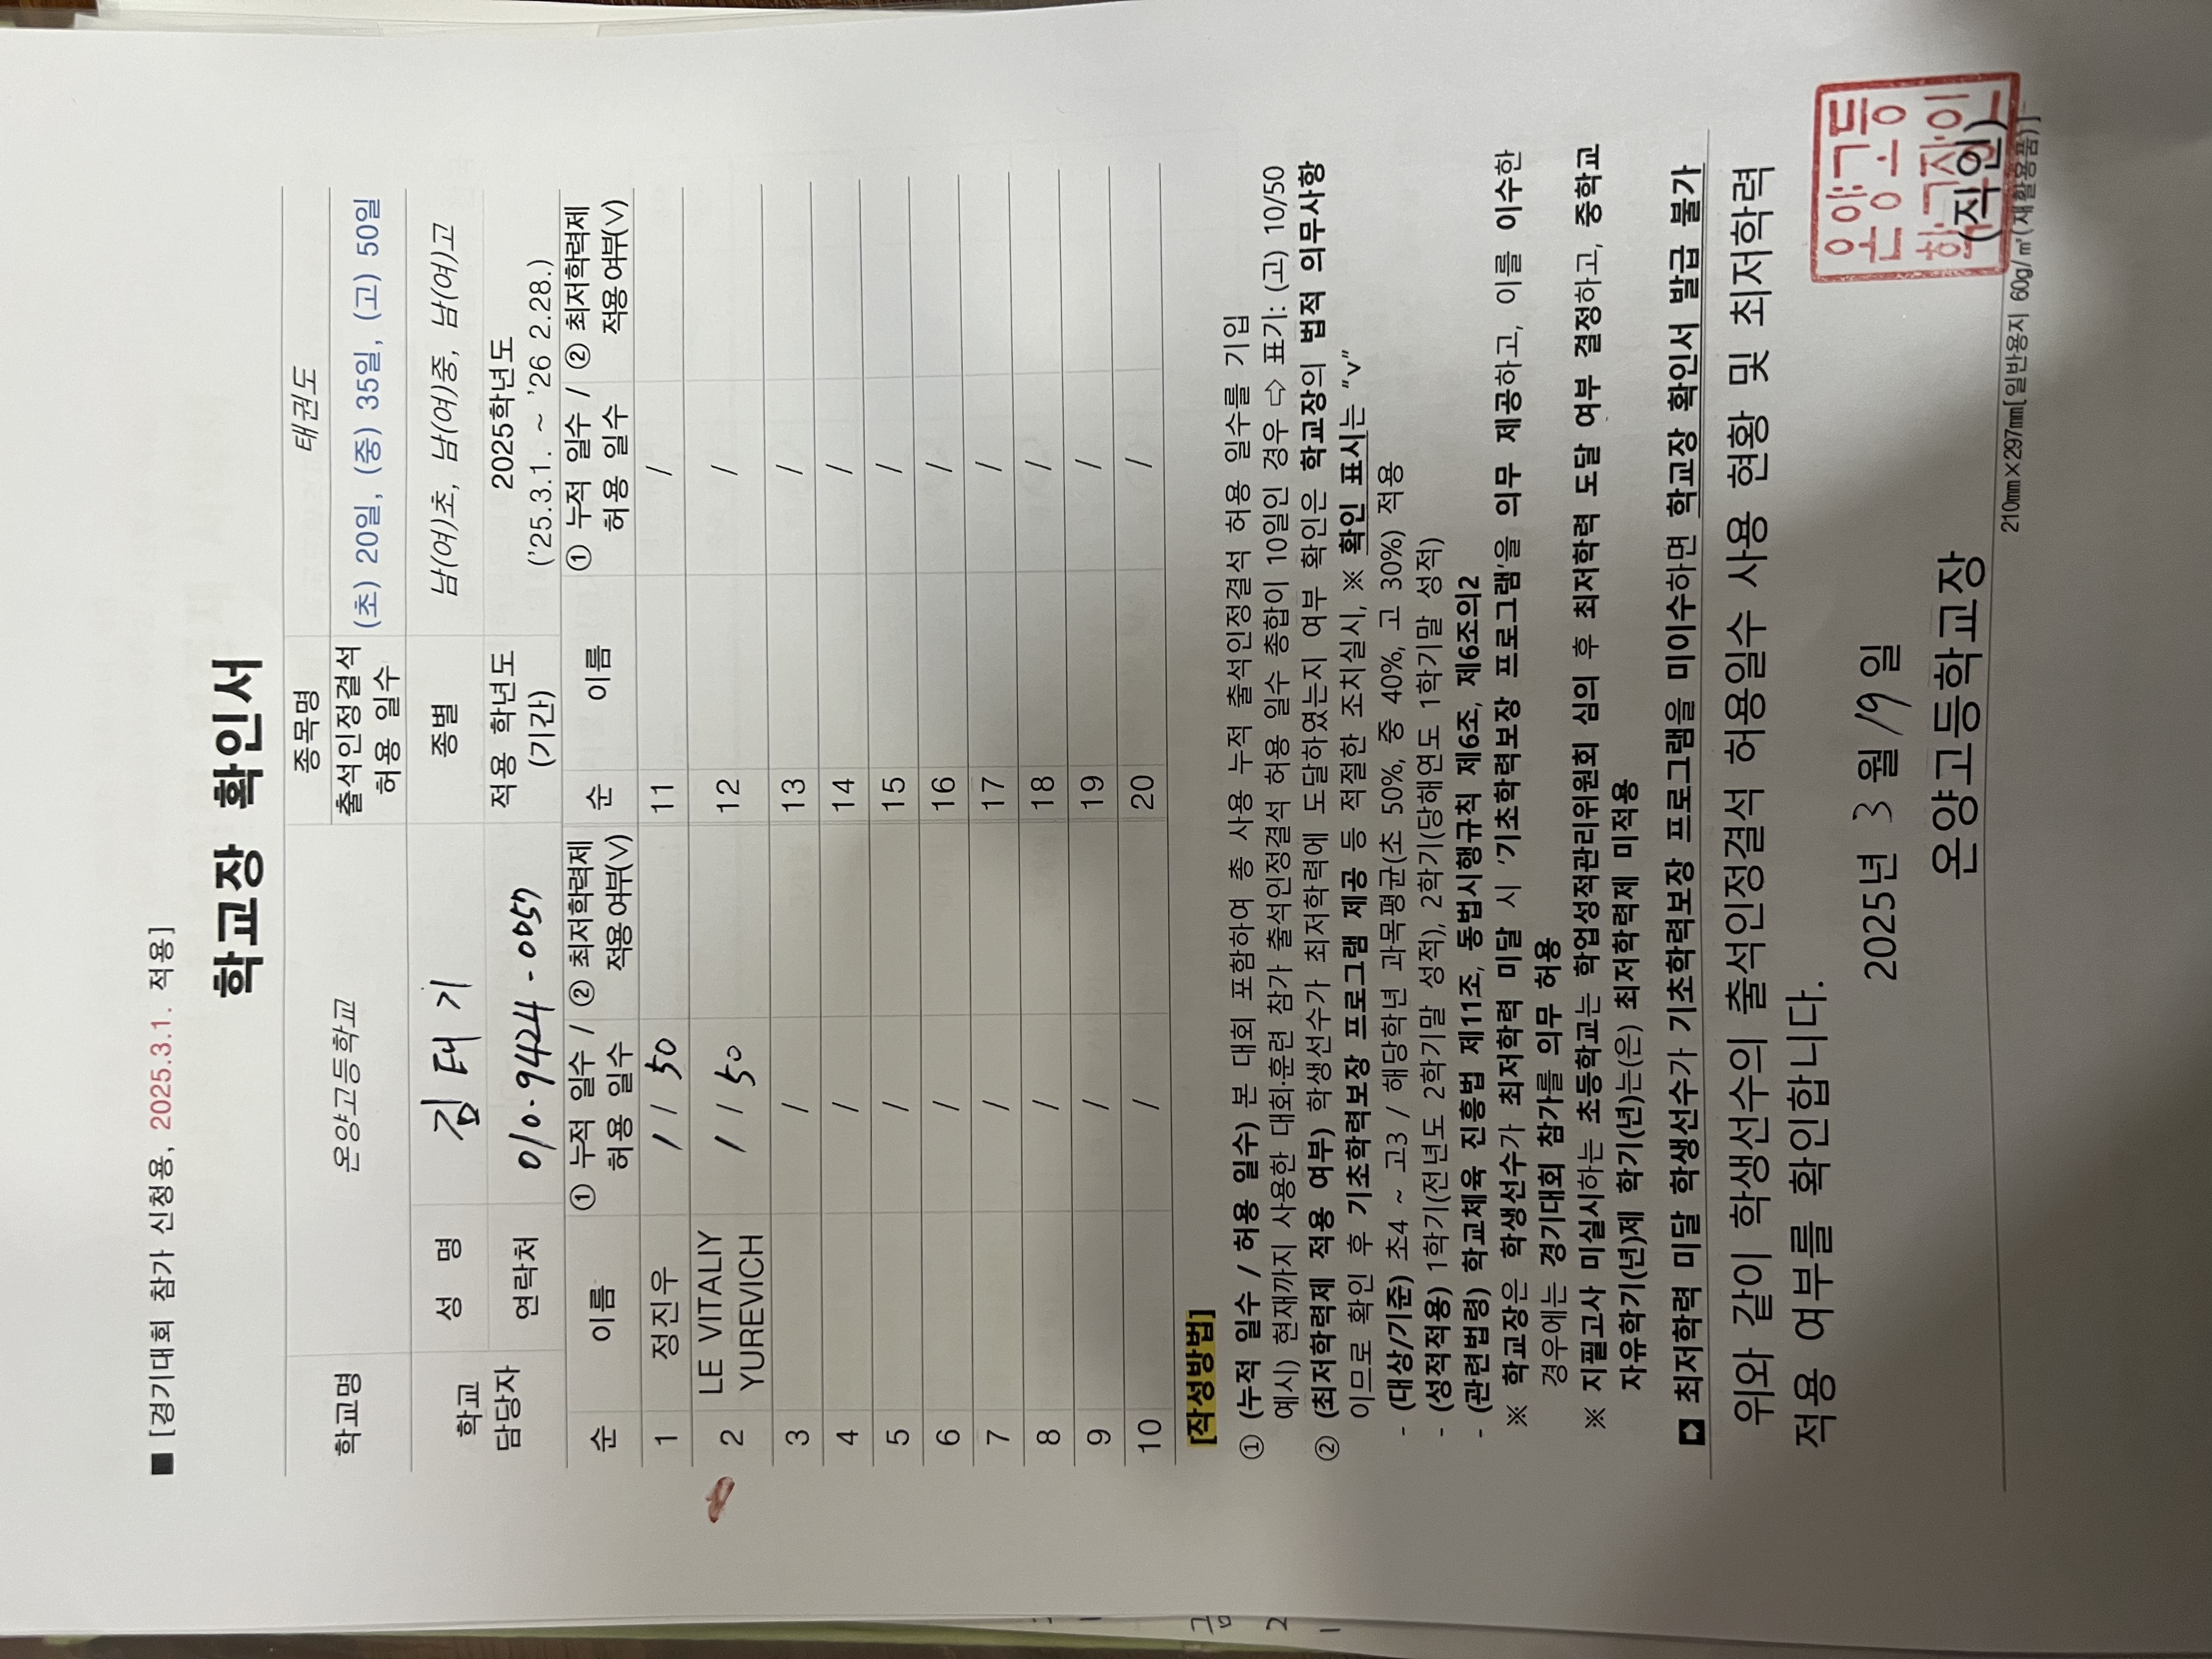 ■ [경기대회 참가 신청용, 2025.3.1. 적용]
학교장 확인서
학교명 온양고등학교 종목명 태권도
출석인정결석 허용 일수 (초) 20일, (중) 35일, (고) 50일
학교 담당자 성 명 김태기 종별 남(여)초, 남(여)중, 남(여)고
연락처 010-9424-0057 적용 학년도 (기간) 2025학년도 ('25.3.1. ~ '26 2.28.)
순 이름 ① 누적 일수 / 허용 일수 ② 최저학력제 적용여부(V) 순 이름 ① 누적 일수 / 허용 일수 ② 최저학력제 적용여부(V)
1 정진우 1 / 50 11 /
2 LE VITALIY YUREVICH 1 / 50 12 /
3 / 13 /
4 / 14 /
5 / 15 /
6 / 16 /
7 / 17 /
8 / 18 /
9 / 19 /
10 / 20 /
[작성방법]
① (누적 일수 / 허용 일수) 본 대회 포함하여 총 사용 누적 출석인정결석 허용 일수를 기입
예시) 현재까지 사용한 대회·훈련 참가 출석인정결석 허용 일수 총합이 10일인 경우 ⇨ 표기: (고) 10/50
② (최저학력제 적용 여부) 학생선수가 최저학력에 도달하였는지 여부 확인은 학교장의 법적 의무사항
이므로 확인 후 기초학력보장 프로그램 제공 등 적절한 조치실시, ※ 확인 표시는 "v"
- (대상/기준) 초4 ~ 고3 / 해당학년 과목평균(초 50%, 중 40%, 고 30%) 적용
- (성적적용) 1학기(전년도 2학기말 성적), 2학기(당해연도 1학기말 성적)
- (관련법령) 학교체육 진흥법 제11조, 동법시행규칙 제6조, 제6조의2
※ 학교장은 학생선수가 최저학력 미달 시 '기초학력보장 프로그램'을 의무 제공하고, 이를 이수한
경우에는 경기대회 참가를 의무 허용
※ 지필고사 미실시하는 초등학교는 학업성적관리위원회 심의 후 최저학력 도달 여부 결정하고, 중학교
자유학기(년)제 학기(년)는(은) 최저학력제 미적용
최저학력 미달 학생선수가 기초학력보장 프로그램을 미이수하면 학교장 확인서 발급 불가
위와 같이 학생선수의 출석인정결석 허용일수 사용 현황 및 최저학력
적용 여부를 확인합니다.
2025년 3월 19일
온양고등학교장 (직인)
온양고등
학교장인
210mm×297mm[일반용지 60g/㎡(재활용품)]